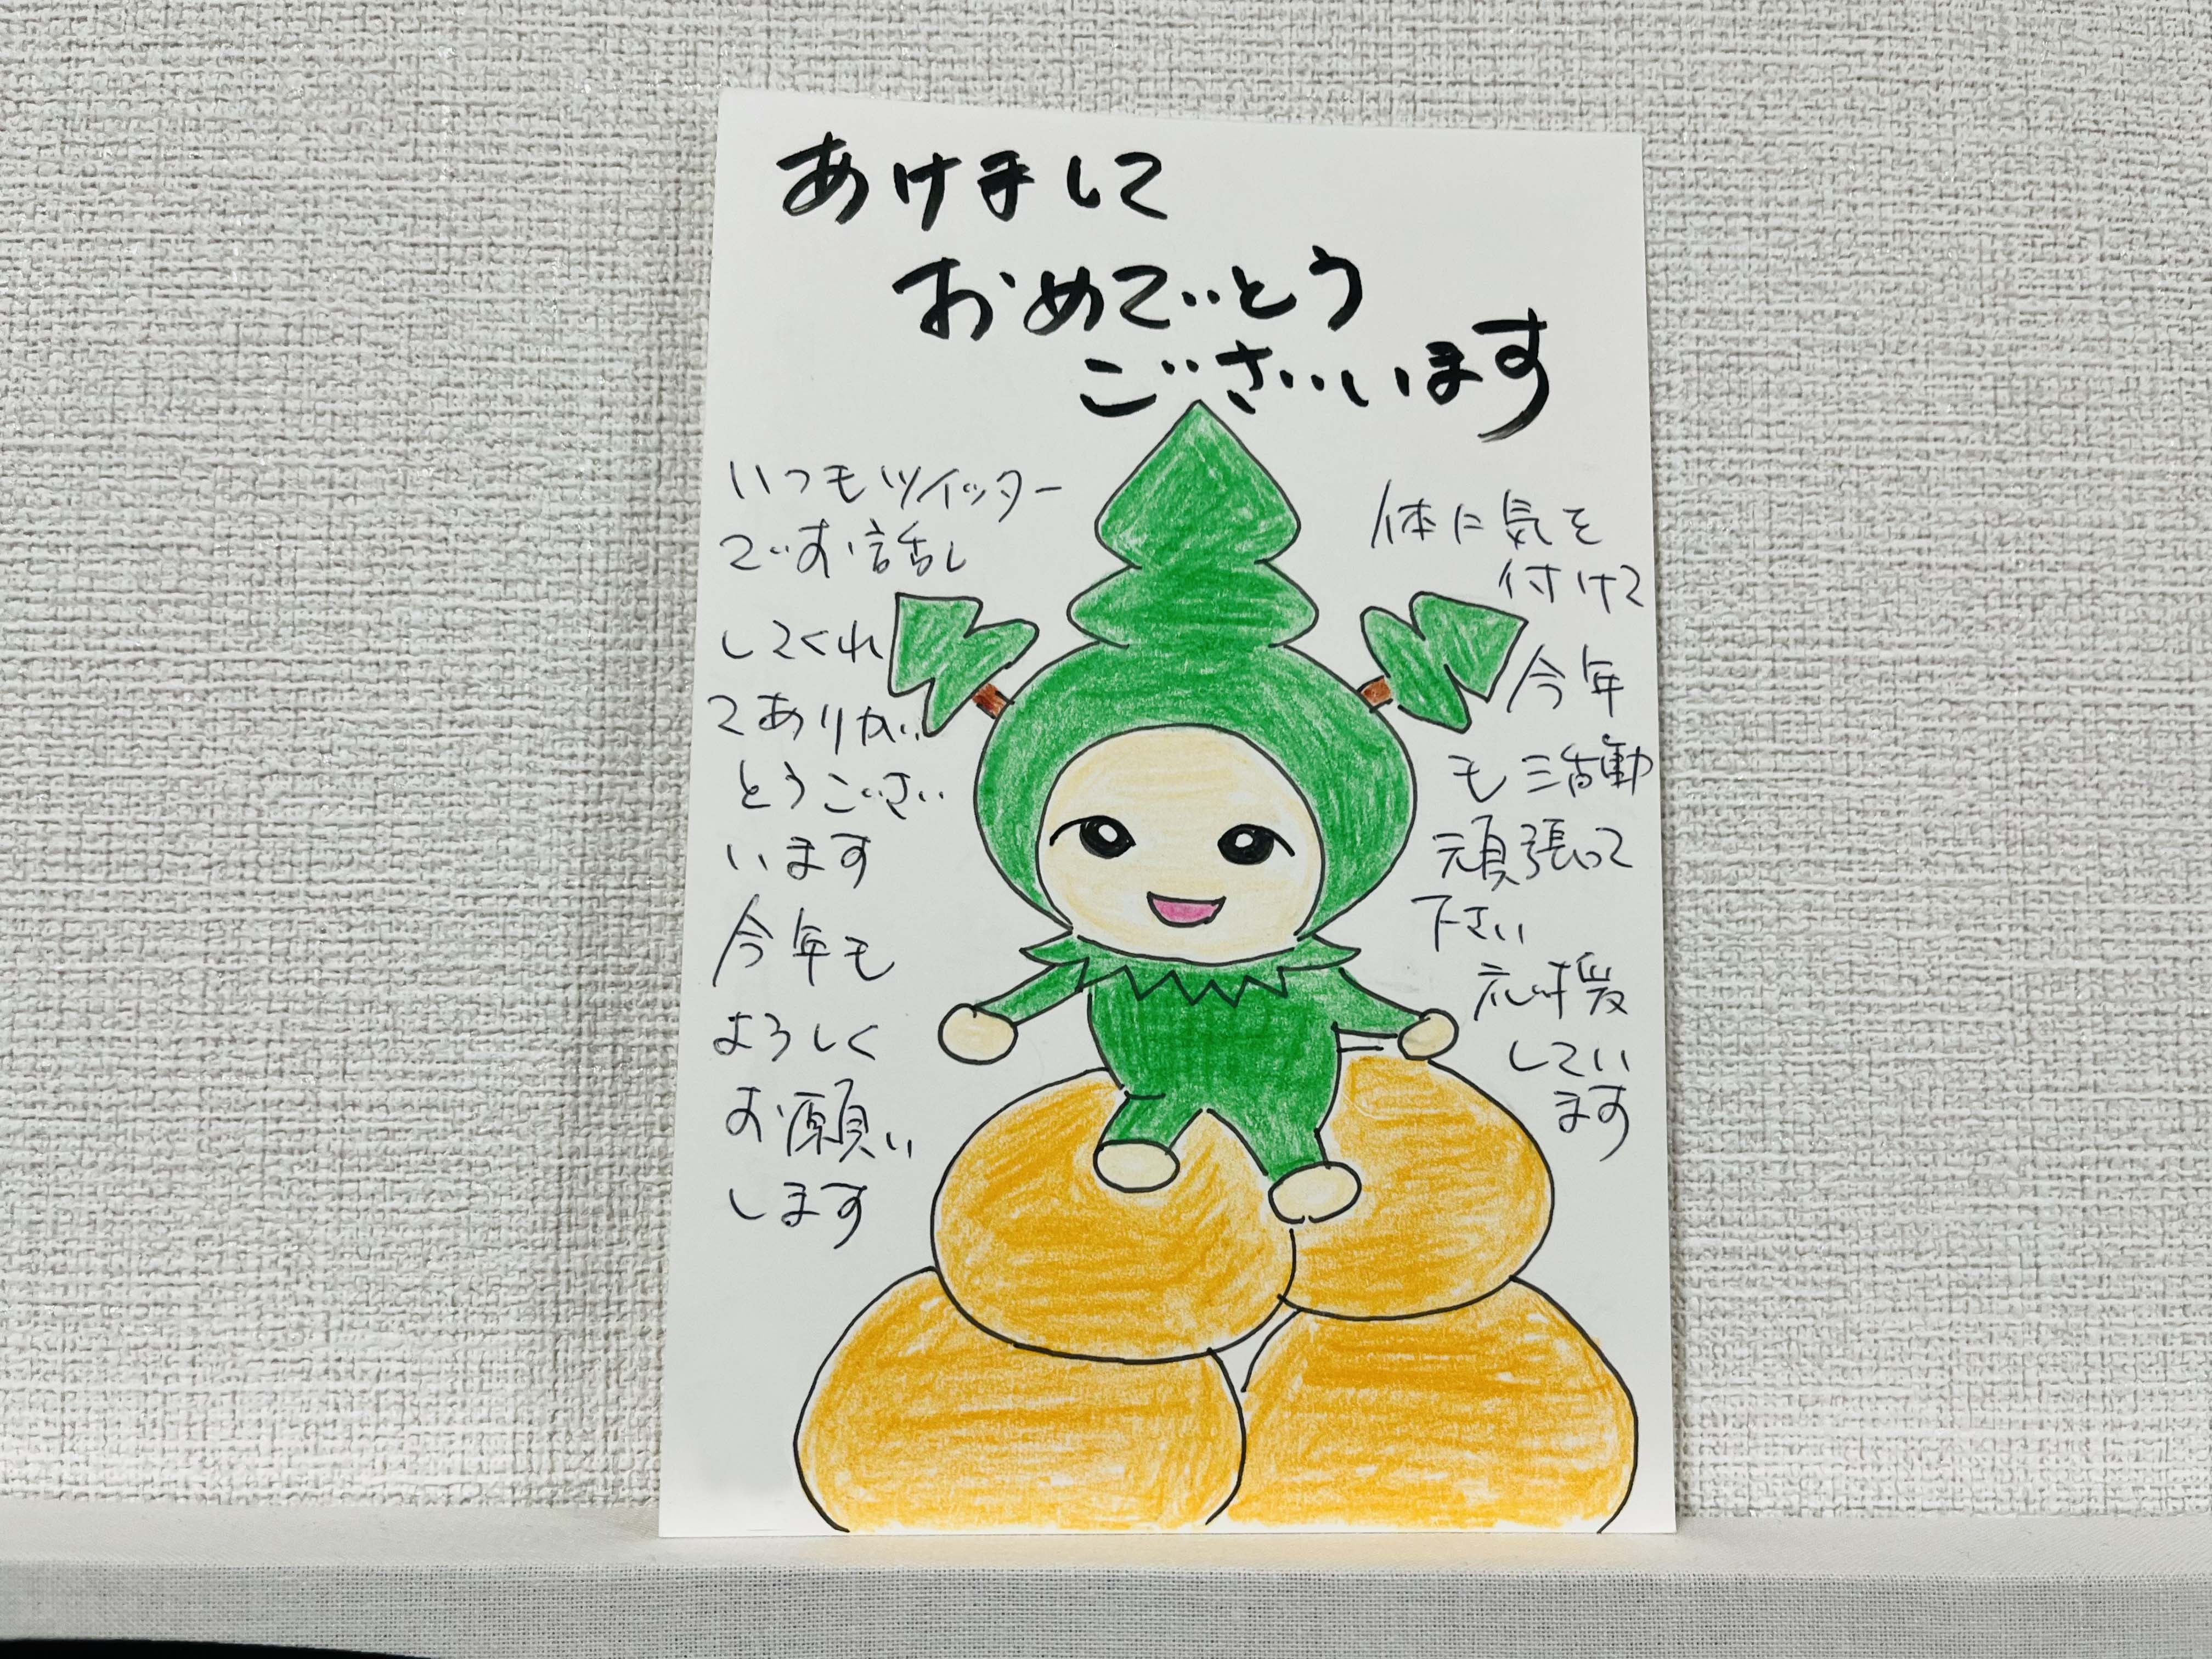 あけまして
おめでとう
ございます
いつもツイッター
でお話し
してくれ
てありが
とうござい
います
今年も
よろしく
お願い
します
体に気を
付けて
今年
も活動
頑張って
下さい
応援
してい
ます